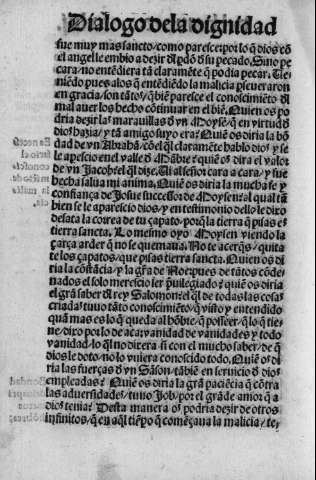 Dialogo dela dignidad
fue muy mas sancto/como paresce:por lo q̃ dios cõ
el angel le embio a dezir dl̃ pdõ d̃ su pecado. Si no pe
cara/no entẽdiera tã claramẽte q̃ podia pecar. Te
niẽdo pues a los q̃ entẽdiẽdo la malicia pseueraron
en gracia/son tãtos/q̃ biẽ parece el conoscimiẽto dl̃
mal auer los hecho cõtinuar en el biẽ. Quiẽ nos po
dria dezir las marauillas d̃ vn Moyse/ q̃ en virtud d̃
dios hazia/y tã amigo suyo era: Nuiẽ os diria la bõ
dad de vn Abrahã/cõ el q̃l claramẽte hablo dios/y se
le aparescio en el valle d̃ Mãbre: quiẽ os dira el valor
de vn Jacob:el q̃l dize. Vi al señor cara a cara/y fue
hecha salua mi anima. Nuiẽ os diria la mucha fe y
confiança de Josue successor de Moysen:al qual tã
biẽ se le aparescio dios/y en testimonio dello le diro
desata la correa de tu çapato/porq̃ la tierra q̃ pisas es
tierra sancta. Lo mesmo oyo Moysen viendo la
çarça arder q̃ no se quemaua. No te acerq̃s/quita
te los çapatos/que pisas tierra sancta. Nuien os di
ria la cõstãcia/y la gr̃a de Noe:pues de tãtos cõde
nados el solo merescio ser p̃uilegiado: quiẽ os diria
el grã saber dl̃ rey Salomon:el q̃l de todas las cosas
criadas tuuo tãto conoscimiẽto/ q̃ visto y entendido
quã mas es lo q̃ queda al hõbre q̃ posseer/q̃ lo q̃ tie
ne/diro por lo de aca:vanidad de vanidades y todo
vanidad:lo q̃l no dixera si con el mucho saber/de q̃
dios le doto/no lo vuiera conoscido todo. Nuiẽ os di
ria las fuerças d̃ vn Sãson/tãbiẽ en seruicio d̃ dios
empleadas: Nuiẽ os diria la grã paciẽcia q̃ cõtra
las aduersidades tuuo Job/por el grãde amor q̃ a
dios tenia: Desta manera os podria dezir de otros
infinitos/ q̃ en aq̃l tiẽpo q̃ començaua la malicia/te/